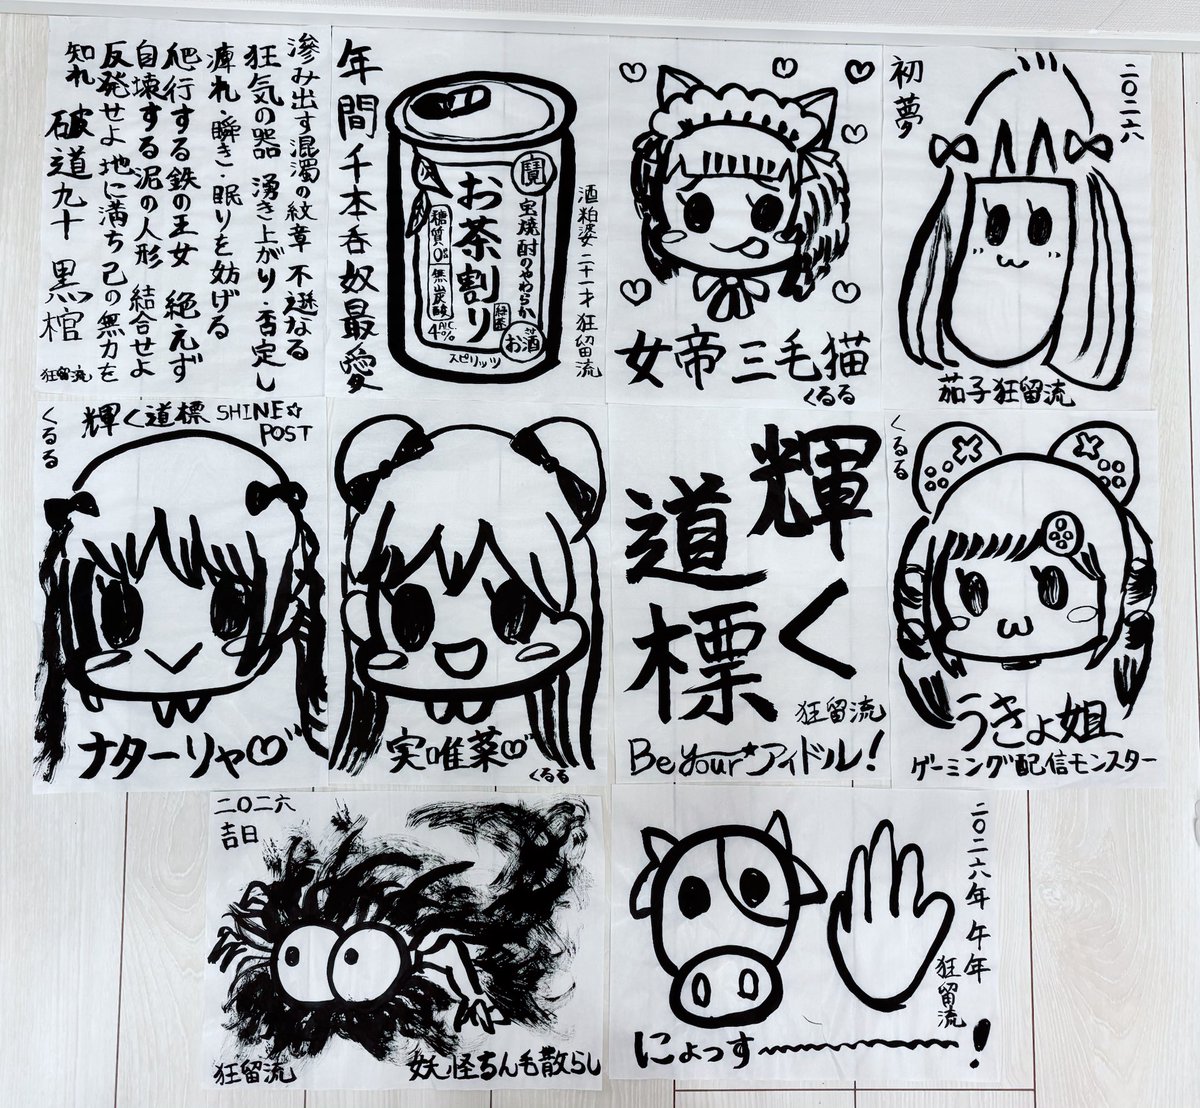 滲み出す混濁の紋章 不遜なる
狂気の器 湧き上がり・否定し
痺れ・瞬き・眠りを妨げる
爬行する鉄の王女 絶えず
自壊する泥の人形 結合せよ
反発せよ 地に満ち己の無力を
知れ 破道九十 黒棺
狂留流
年間千本呑奴最愛
寶
宝焼酎のやわらか
お茶割り
糖質0%
無炭酸
ALC.
4%
緑茶
お酒
スピリッツ
酒粕婆 二十一才 狂留流
女帝三毛猫
くるる
初夢
二〇二六
茄子狂留流
くるる
輝く道標 SHINE☆
POST
ナターリャ♡
実唯菜♡
くるる
輝く
道標
狂留流
Be Your★アイドル!
くるる
うきょ姐
ゲーミング配信モンスター
二〇二六
吉日
狂留流
妖怪ちん毛散らし
二〇二六年 午年
狂留流
にょっす〜〜〜〜!